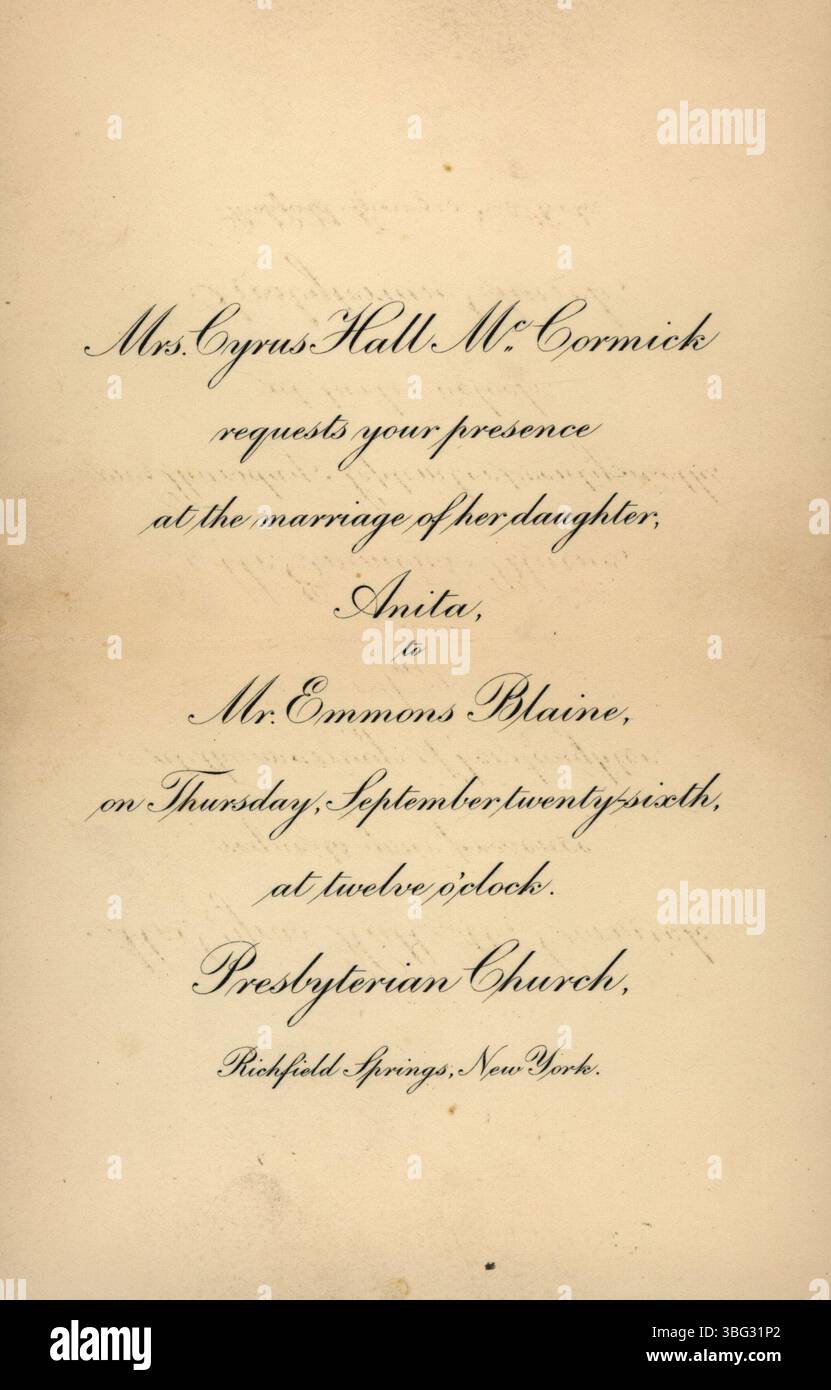 Mrs. Cyrus Hall Mc Cormick
requests your presence
at the marriage of her daughter,
Anita,
to
Mr. Emmons Blaine,
on Thursday, September twenty-sixth,
at twelve o'clock.
Presbyterian Church,
Richfield Springs, New York.
alamy
Image ID: 3BG31P2
www.alamy.com